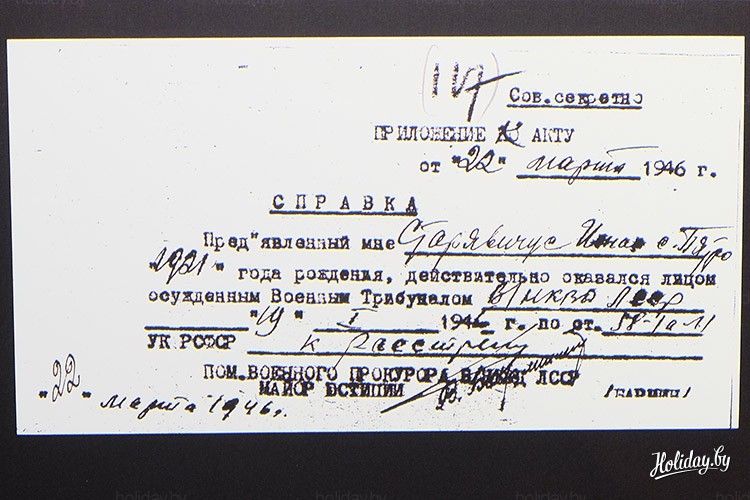 117
Сов.секретно
ПРИЛОЖЕНИЕ К АКТУ
от "22" марта 1946 г.
СПРАВКА
Пред"явленный мне Старявичус Йонас с. Пятро
"1921" года рождения, действительно оказался лицом
осужденным Военным Трибуналом В/НКВД ЛССР
"19" I 1946 г. по ст. 58-1а
УК РСФСР к расстрелу
ПОМ.ВОЕННОГО ПРОКУРОРА В/НКВД ЛССР
МАЙОР ЮСТИЦИИ
"22" марта 1946г.
Holiday.by